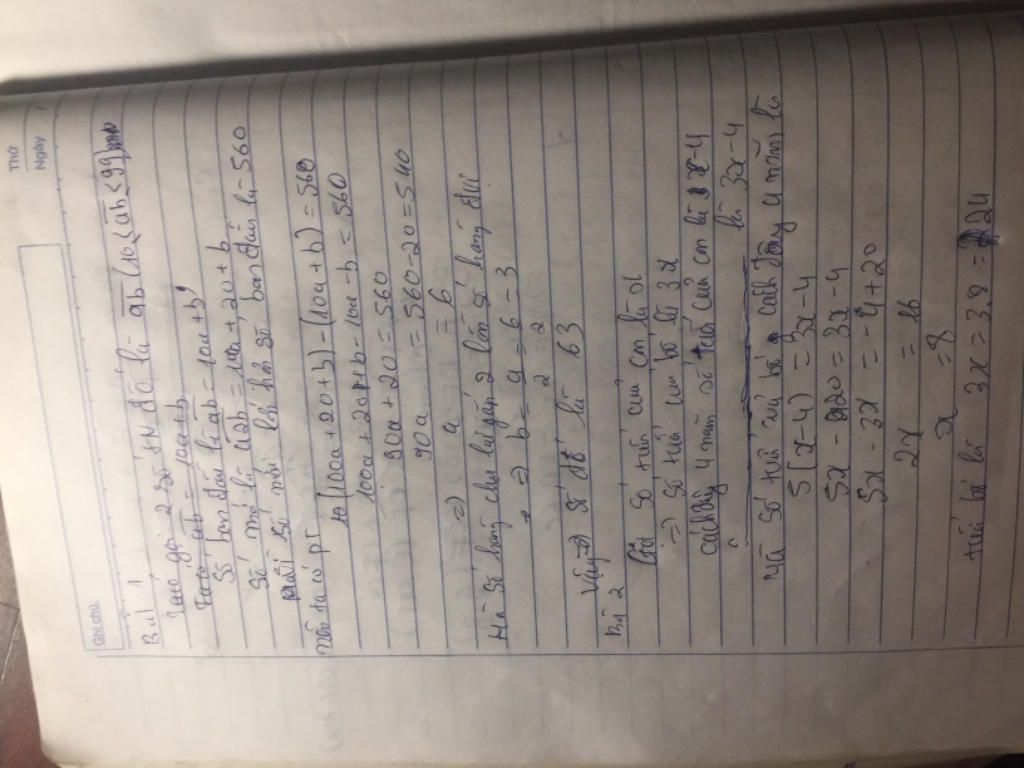 Thứ
Ngày
Ghi chú:
Bài 1
gọi 2 số TN đó là ab (10 < ab < 99)
ab = 10a + b
Số ban đầu là ab = 10a + b
Số mới là a2b = 100a + 20 + b
số mới lớn hơn số ban đầu là 560
Nên ta có PT
(100a + 20 + b) - (10a + b) = 560
100a + 20 + b - 10a - b = 560
90a + 20 = 560
90a = 560 - 20 = 540
=> a = 6
Mà số hàng chục lại gấp 2 lần số hàng đvị
=> b = a/2 = 6/2 = 3
Vậy => số đó là 63
Bài 2
Gọi số tuổi của con là x
=> số tuổi của bố là 3x
cách đây 4 năm số tuổi của con là x - 4
là 3x - 4
Mà số tuổi của bố cách đây 4 năm là
5(x - 4) = 3x - 4
5x - 20 = 3x - 4
5x - 3x = -4 + 20
2x = 16
x = 8
tuổi bố là 3x = 3.8 = 24